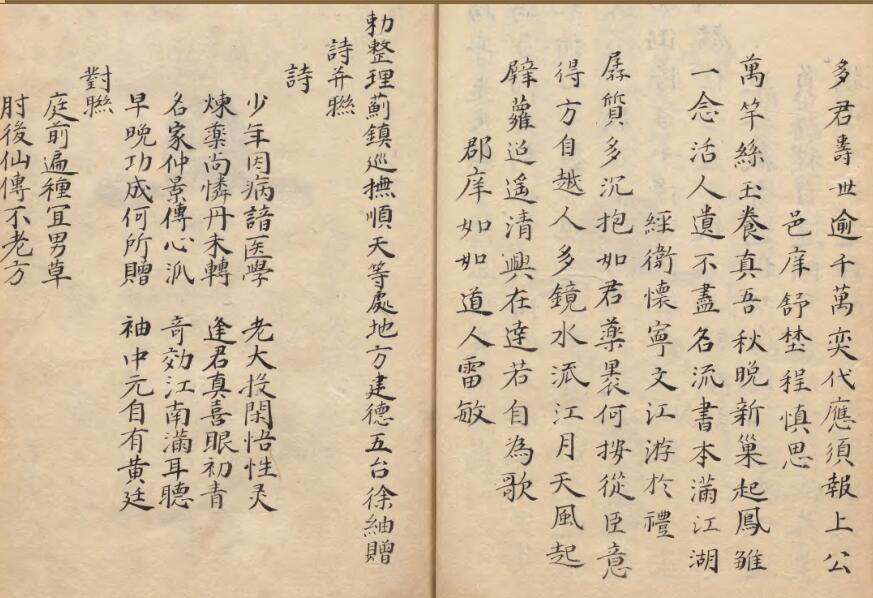 多君壽世逾千萬奕代應須報上公
邑庠舒埜程慎思
萬竿絲玉養真吾秋晚新巢起鳳雛
一念活人遺不盡名流書本滿江湖
經衛懷寧文江游於禮
孱質多沉抱如君藥裹何按從臣意
得方自越人多鏡水派江月天風起
薜蘿迢遙清興在達若自為歌
郡庠如如道人雷敏
勅整理薊鎮巡撫順天等處地方建德五台徐紳贈
詩并聮
詩
少年因病諳医學 老大投閑悟性灵
煉藥尚憐丹未轉 逢君真喜眼初青
名家仲景傳心派 竒効江南滿耳聽
早晚功成何所贈 袖中元自有黄廷
對聮
庭前遍種宜男草
肘後仙傳不老方